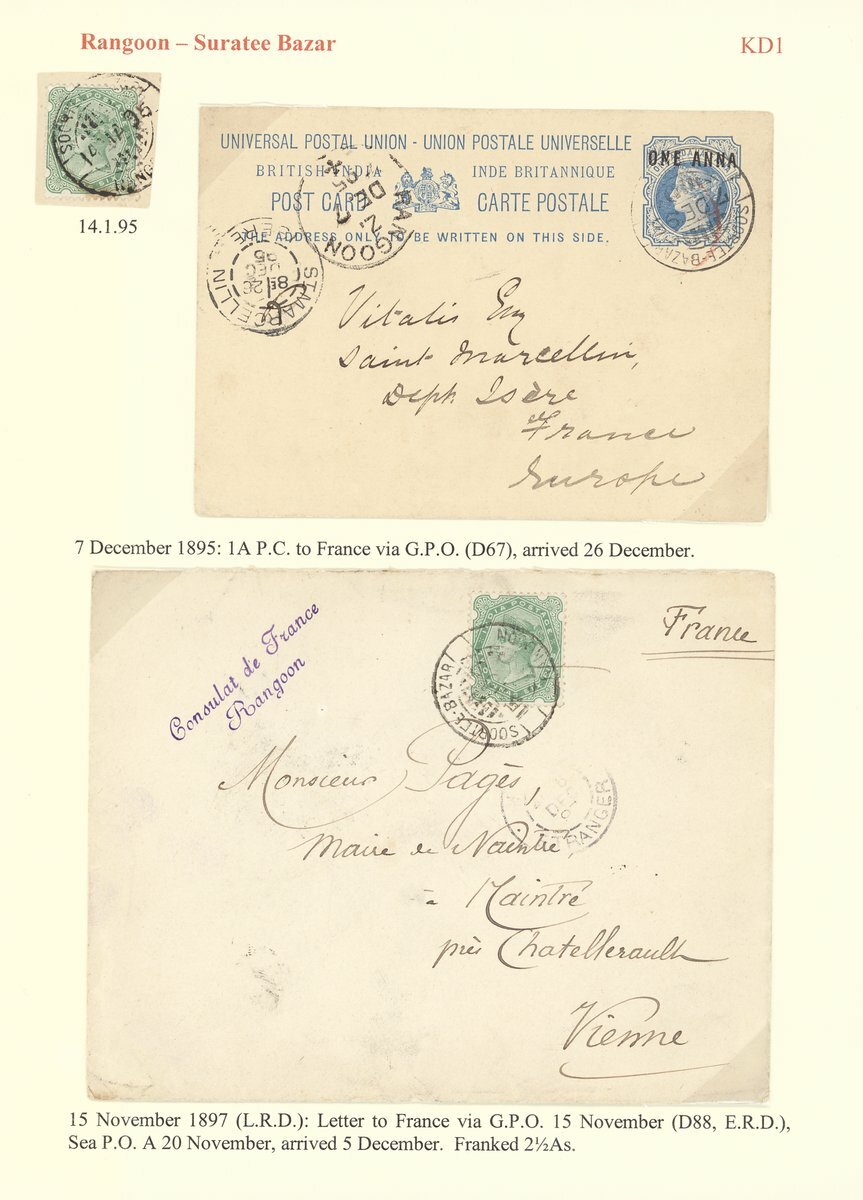 Rangoon – Suratee Bazar
KD1
14.1.95
UNIVERSAL POSTAL UNION - UNION POSTALE UNIVERSELLE
BRITISH INDIA
INDE BRITANNIQUE
POST CARD
CARTE POSTALE
THE ADDRESS ONLY TO BE WRITTEN ON THIS SIDE.
ONE ANNA
SOORTEE-BAZAR
7 DE 9
RANGOON
DEC
ST MARCELLIN
8E
26
DEC
95
Vitalis Esq
Saint Marcellin,
Deph Isère
France
Europe
7 December 1895: 1A P.C. to France via G.P.O. (D67), arrived 26 December.
Consulat de France
Rangoon
INDIA POSTAGE
SOORTEE-BAZAR
France
Monsieur Pagès,
Maire de Naintré,
à Naintré
près Chatellerault
Vienne
15 November 1897 (L.R.D.): Letter to France via G.P.O. 15 November (D88, E.R.D.),
Sea P.O. A 20 November, arrived 5 December. Franked 2½As.